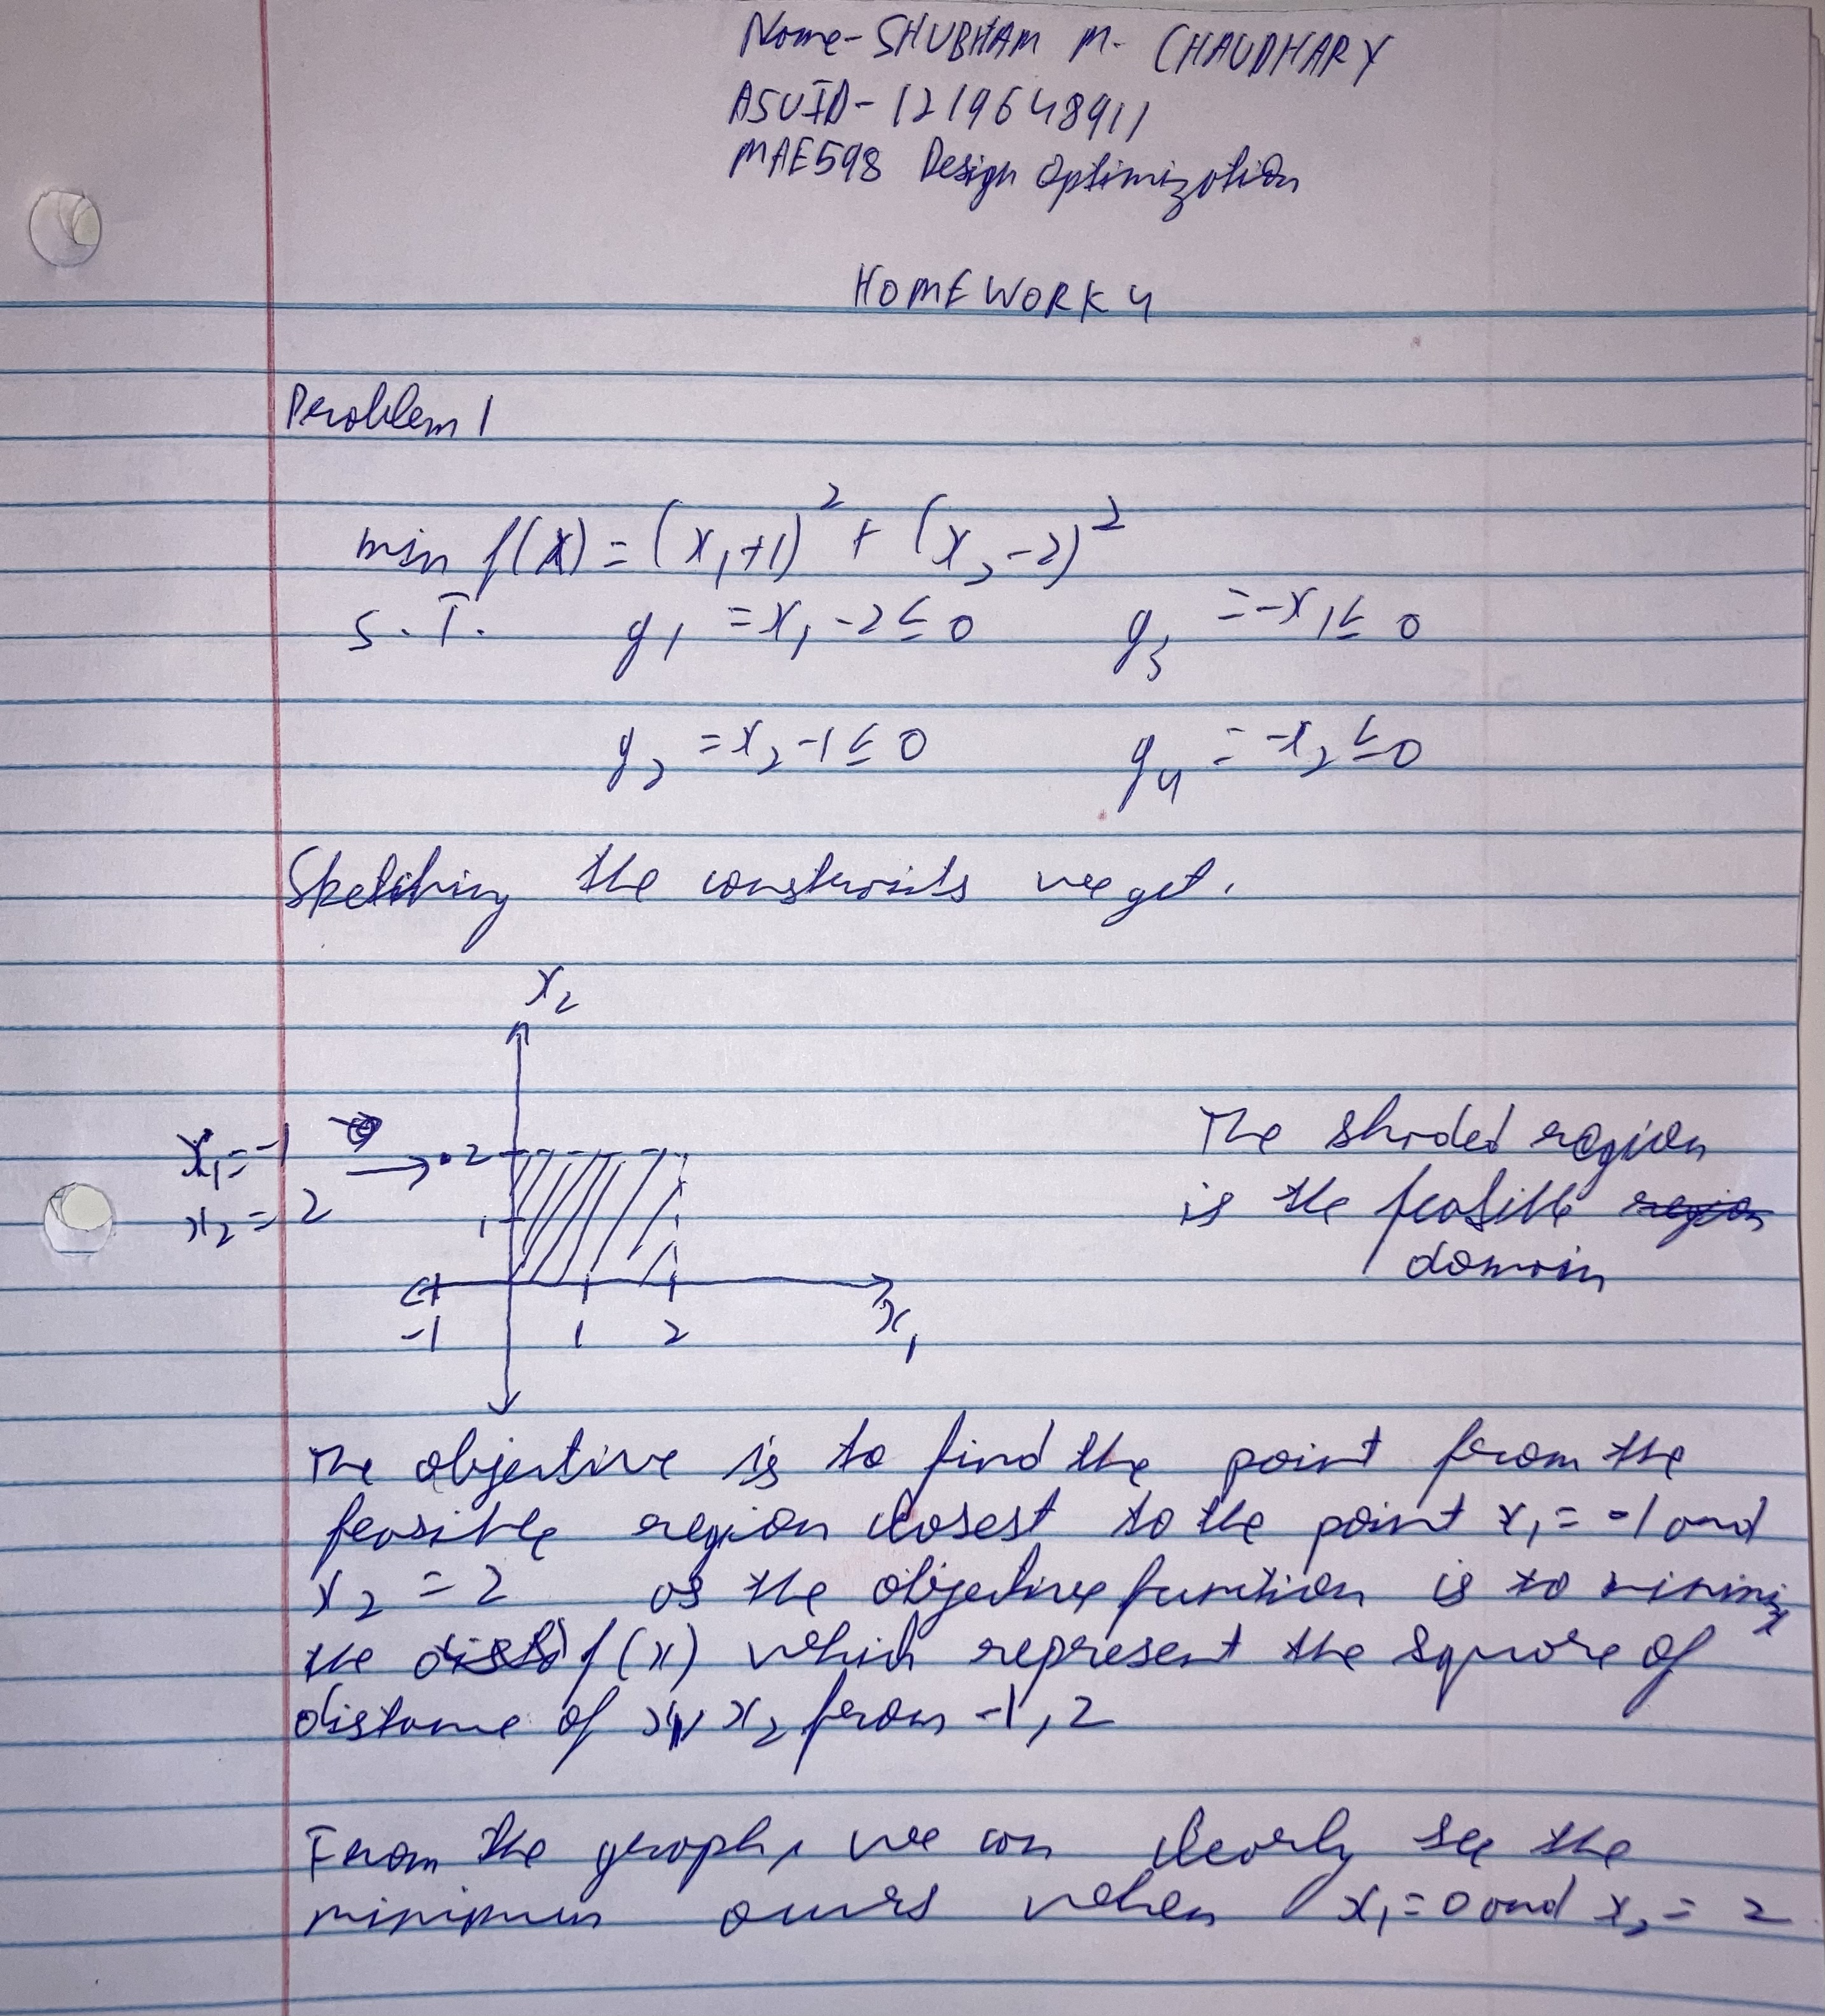 Name- SHUBHAM M. CHAUDHARY
ASUID- 1219648911
MAE598 Design Optimization
HOMEWORK 4
Problem 1
min f(x) = (x₁+1)² + (x₂-2)²
S.T. g₁ = x₁ -2 ≤ 0 g₃ = -x₁ ≤ 0
g₂ = x₂ -1 ≤ 0 g₄ = -x₂ ≤ 0
Sketching the constraints we get.
x₂
x₁ = -1
x₂ = 2
2
1
-1 1 2 x₁
The shaded region
is the feasible region
domain
The objective is to find the point from the
feasible region closest to the point x₁ = -1 and
x₂ = 2 as the objective function is to minimiz
the f(x) which represent the square of
distance of x₁, x₂ from -1, 2
From the graph, we can clearly see the
minimum occurs when x₁ = 0 and x₂ = 2